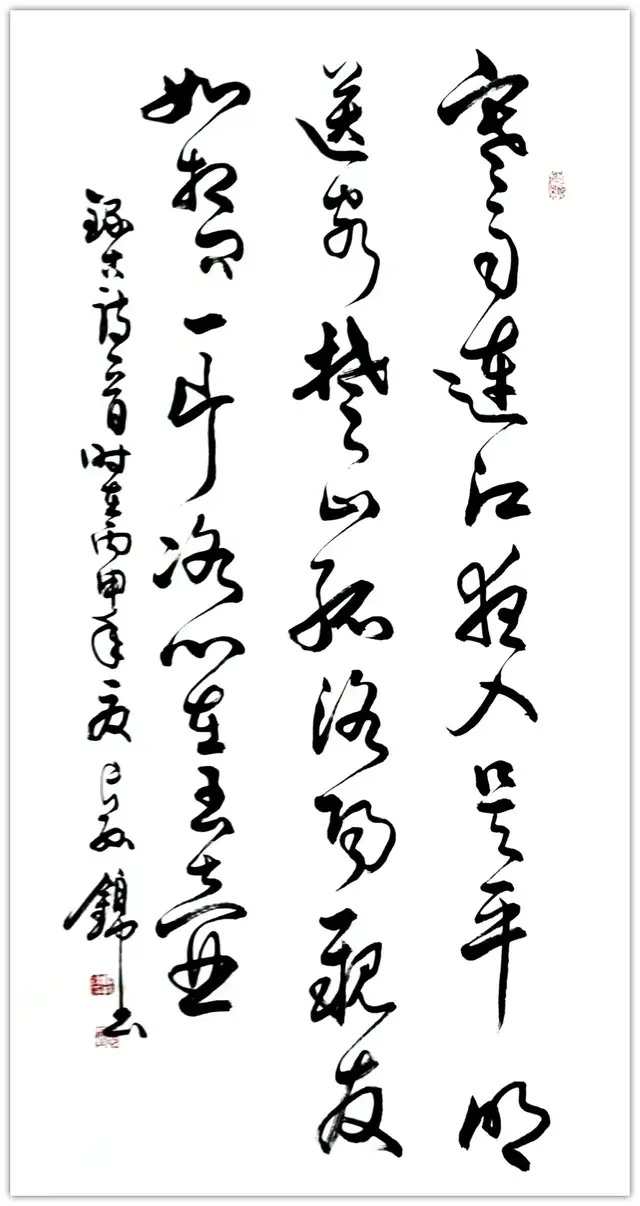 寒雨連江夜入吴平明
送客楚山孤洛陽親友
如相问一片冰心在玉壶
録古詩一首时在丙申年夏錦书